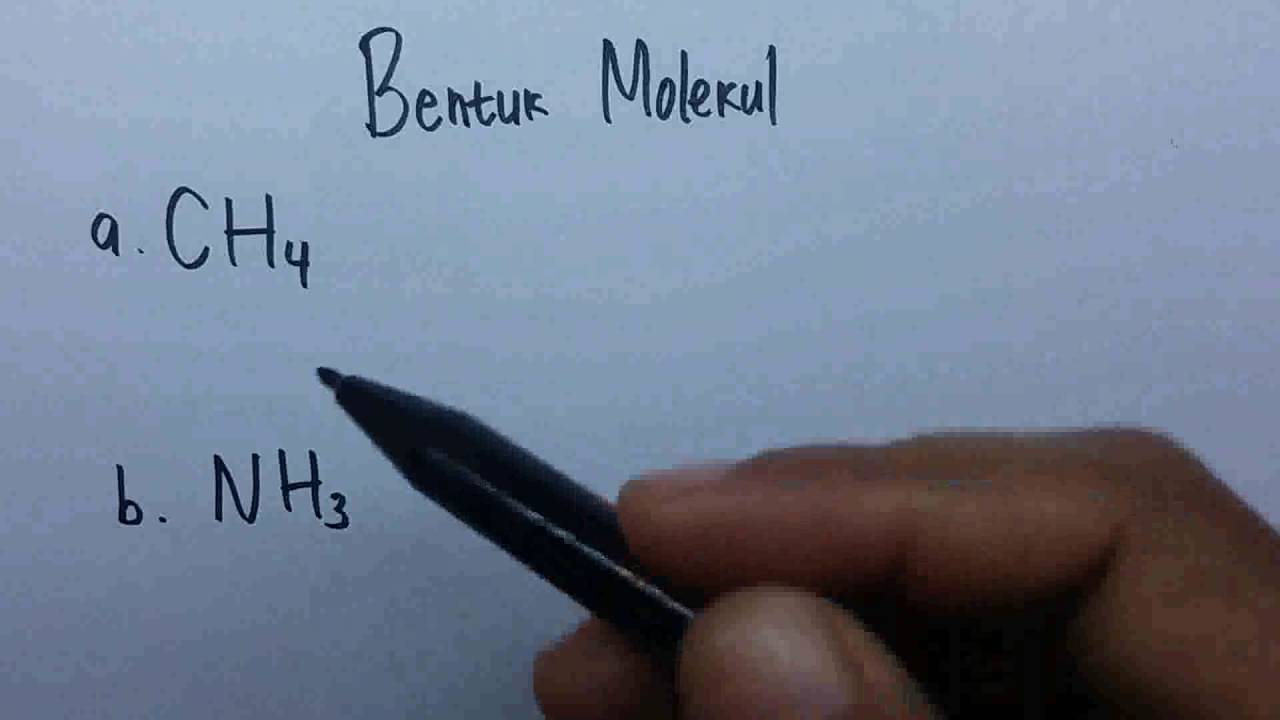 Bentuk Molekul
a. CH₄
b. NH₃